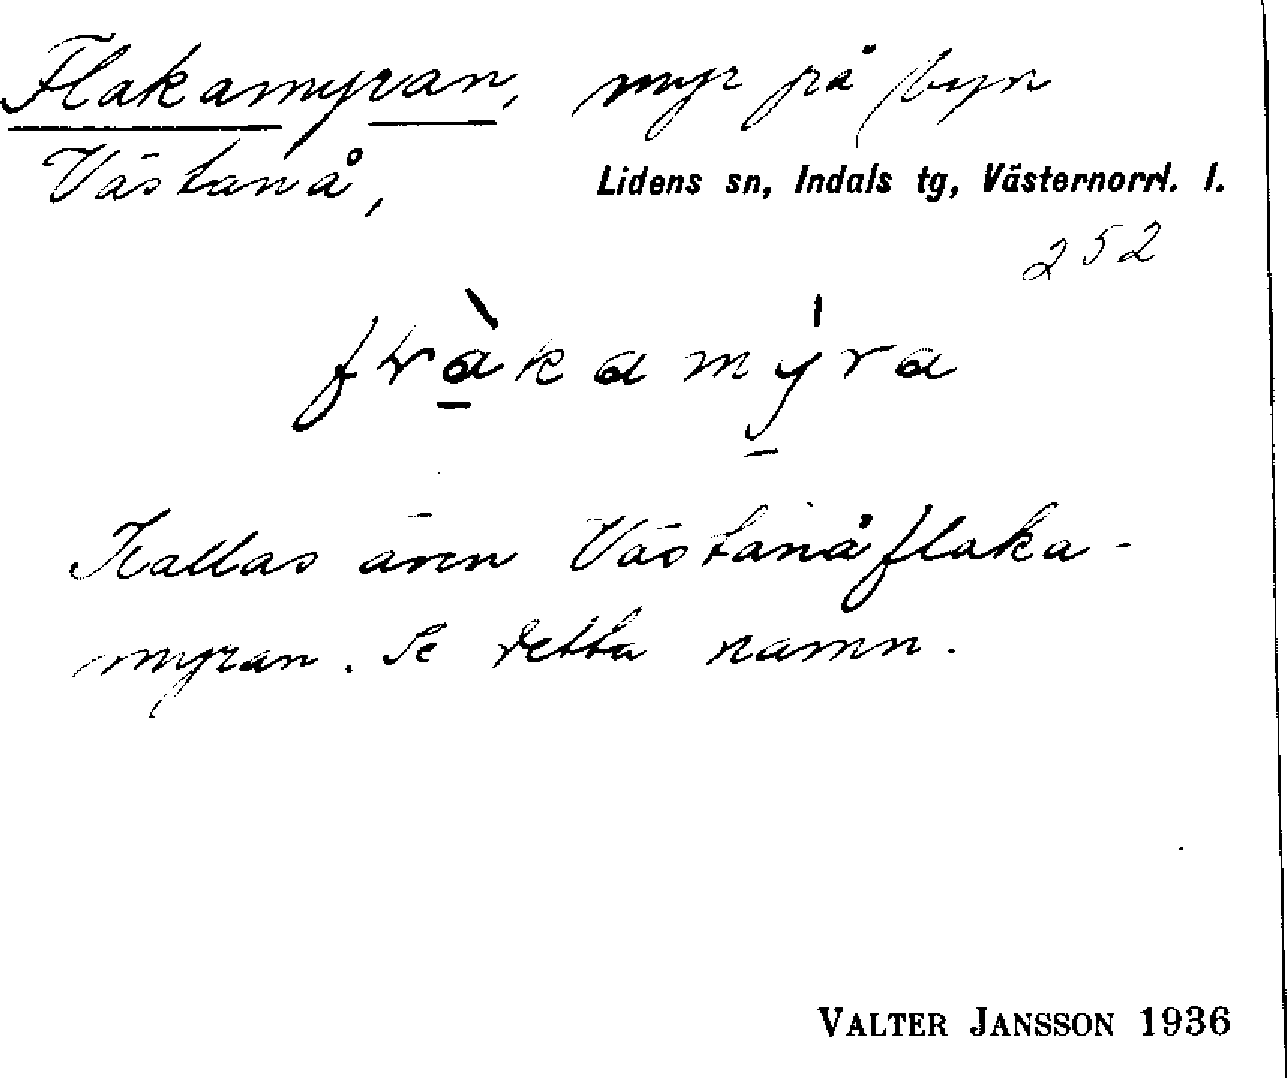 Flakamyran, myr på byn
Västanå,
Lidens sn, Indals tg, Västernorrl. l.
252
Kallas även Västanåflaka-
myran. Se detta namn.
VALTER JANSSON 1936